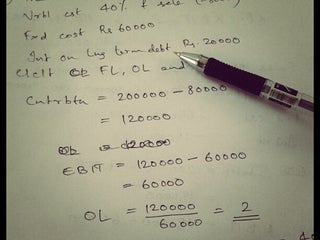 Vrbl cst 40% of sale
Fxd cost Rs 60000
Int on Lng term debt Rs. 20000
Clclt FL, OL and
Cntrbtn = 200000 - 80000
= 120000
EBIT = 120000 - 60000
= 60000
OL = 120000 / 60000 = 2